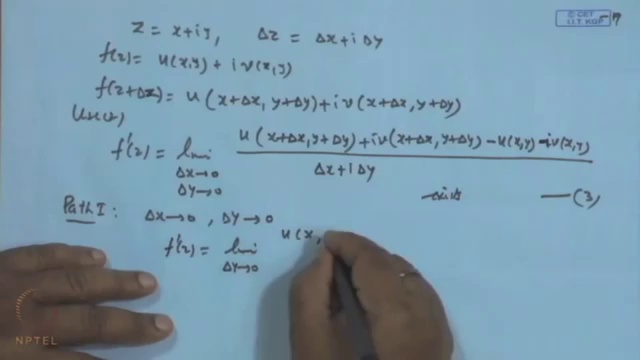 © CET
I.I.T. KGP
-7
Z = x+iy, Δz = Δx+iΔy
f(z) = u(x,y) + iv(x,y)
f(z+Δz) = u(x+Δx, y+Δy) + iv(x+Δx, y+Δy)
f'(z) = lim u(x+Δx, y+Δy) + iv(x+Δx, y+Δy) - u(x,y) - iv(x,y)
Δx→0
Δy→0
Δx+iΔy
—(3)
Path I: Δx→0, Δy→0
f'(z) = lim u(x,
Δy→0
NPTEL